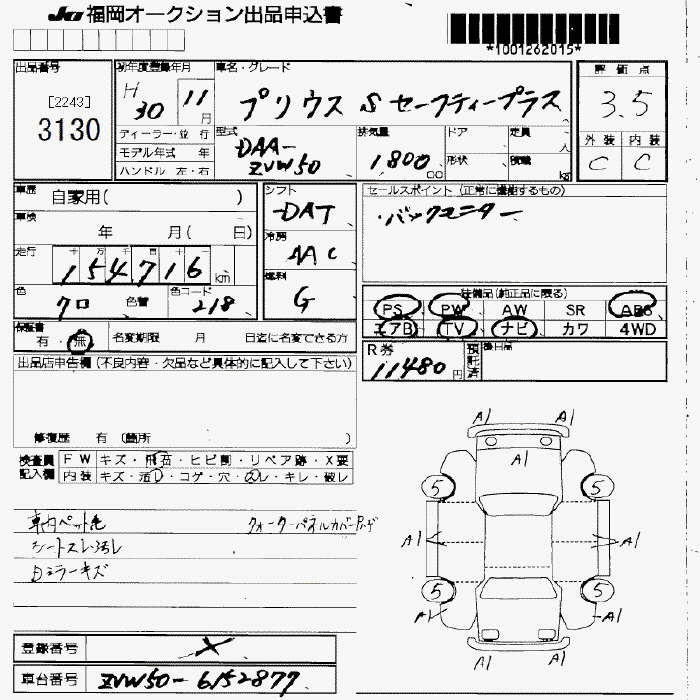 JU 福岡オークション出品申込書
*1001262015*
出品番号
[2243]
3130
初年度登録年月
H 30 11月
車名・グレード
プリウス S セーフティープラス
評価点
3.5
ディーラー・並行
モデル年式 年
ハンドル 左・右
型式
DAA-
ZVW50
排気量
1800 cc
ドア
形状
定員 人
積載 kg
外装 内装
C C
車歴 自家用( )
車検 年 月( 日)
走行 十 万 千 百 十 一
154716 km
色 クロ 色替 色コード 218
シフト
DAT
冷房
AAC
燃料
G
セールスポイント (正常に機能するもの)
・バックモニター
装備品(純正品に限る)
PS PW AW SR ABS
エアB TV ナビ カワ 4WD
保証書 有・無 名変期限 月 日迄に名変できる方
R券
11480円
預託済
後日品
出品店申告欄(不良内容・欠品など具体的に記入して下さい)
修復歴 有 (箇所 )
検査員記入欄
FW キズ・飛石・ヒビ割・リペア跡・X要
内装 キズ・汚レ・コゲ・穴・スレ・キレ・破レ
車内ペット毛
シートスレ汚レ
Dミラーキズ
A1 A1
A1
5 5
A1 A1
5 5
A1 A1
A1 A1
登録番号
車台番号 ZVW50-6152877